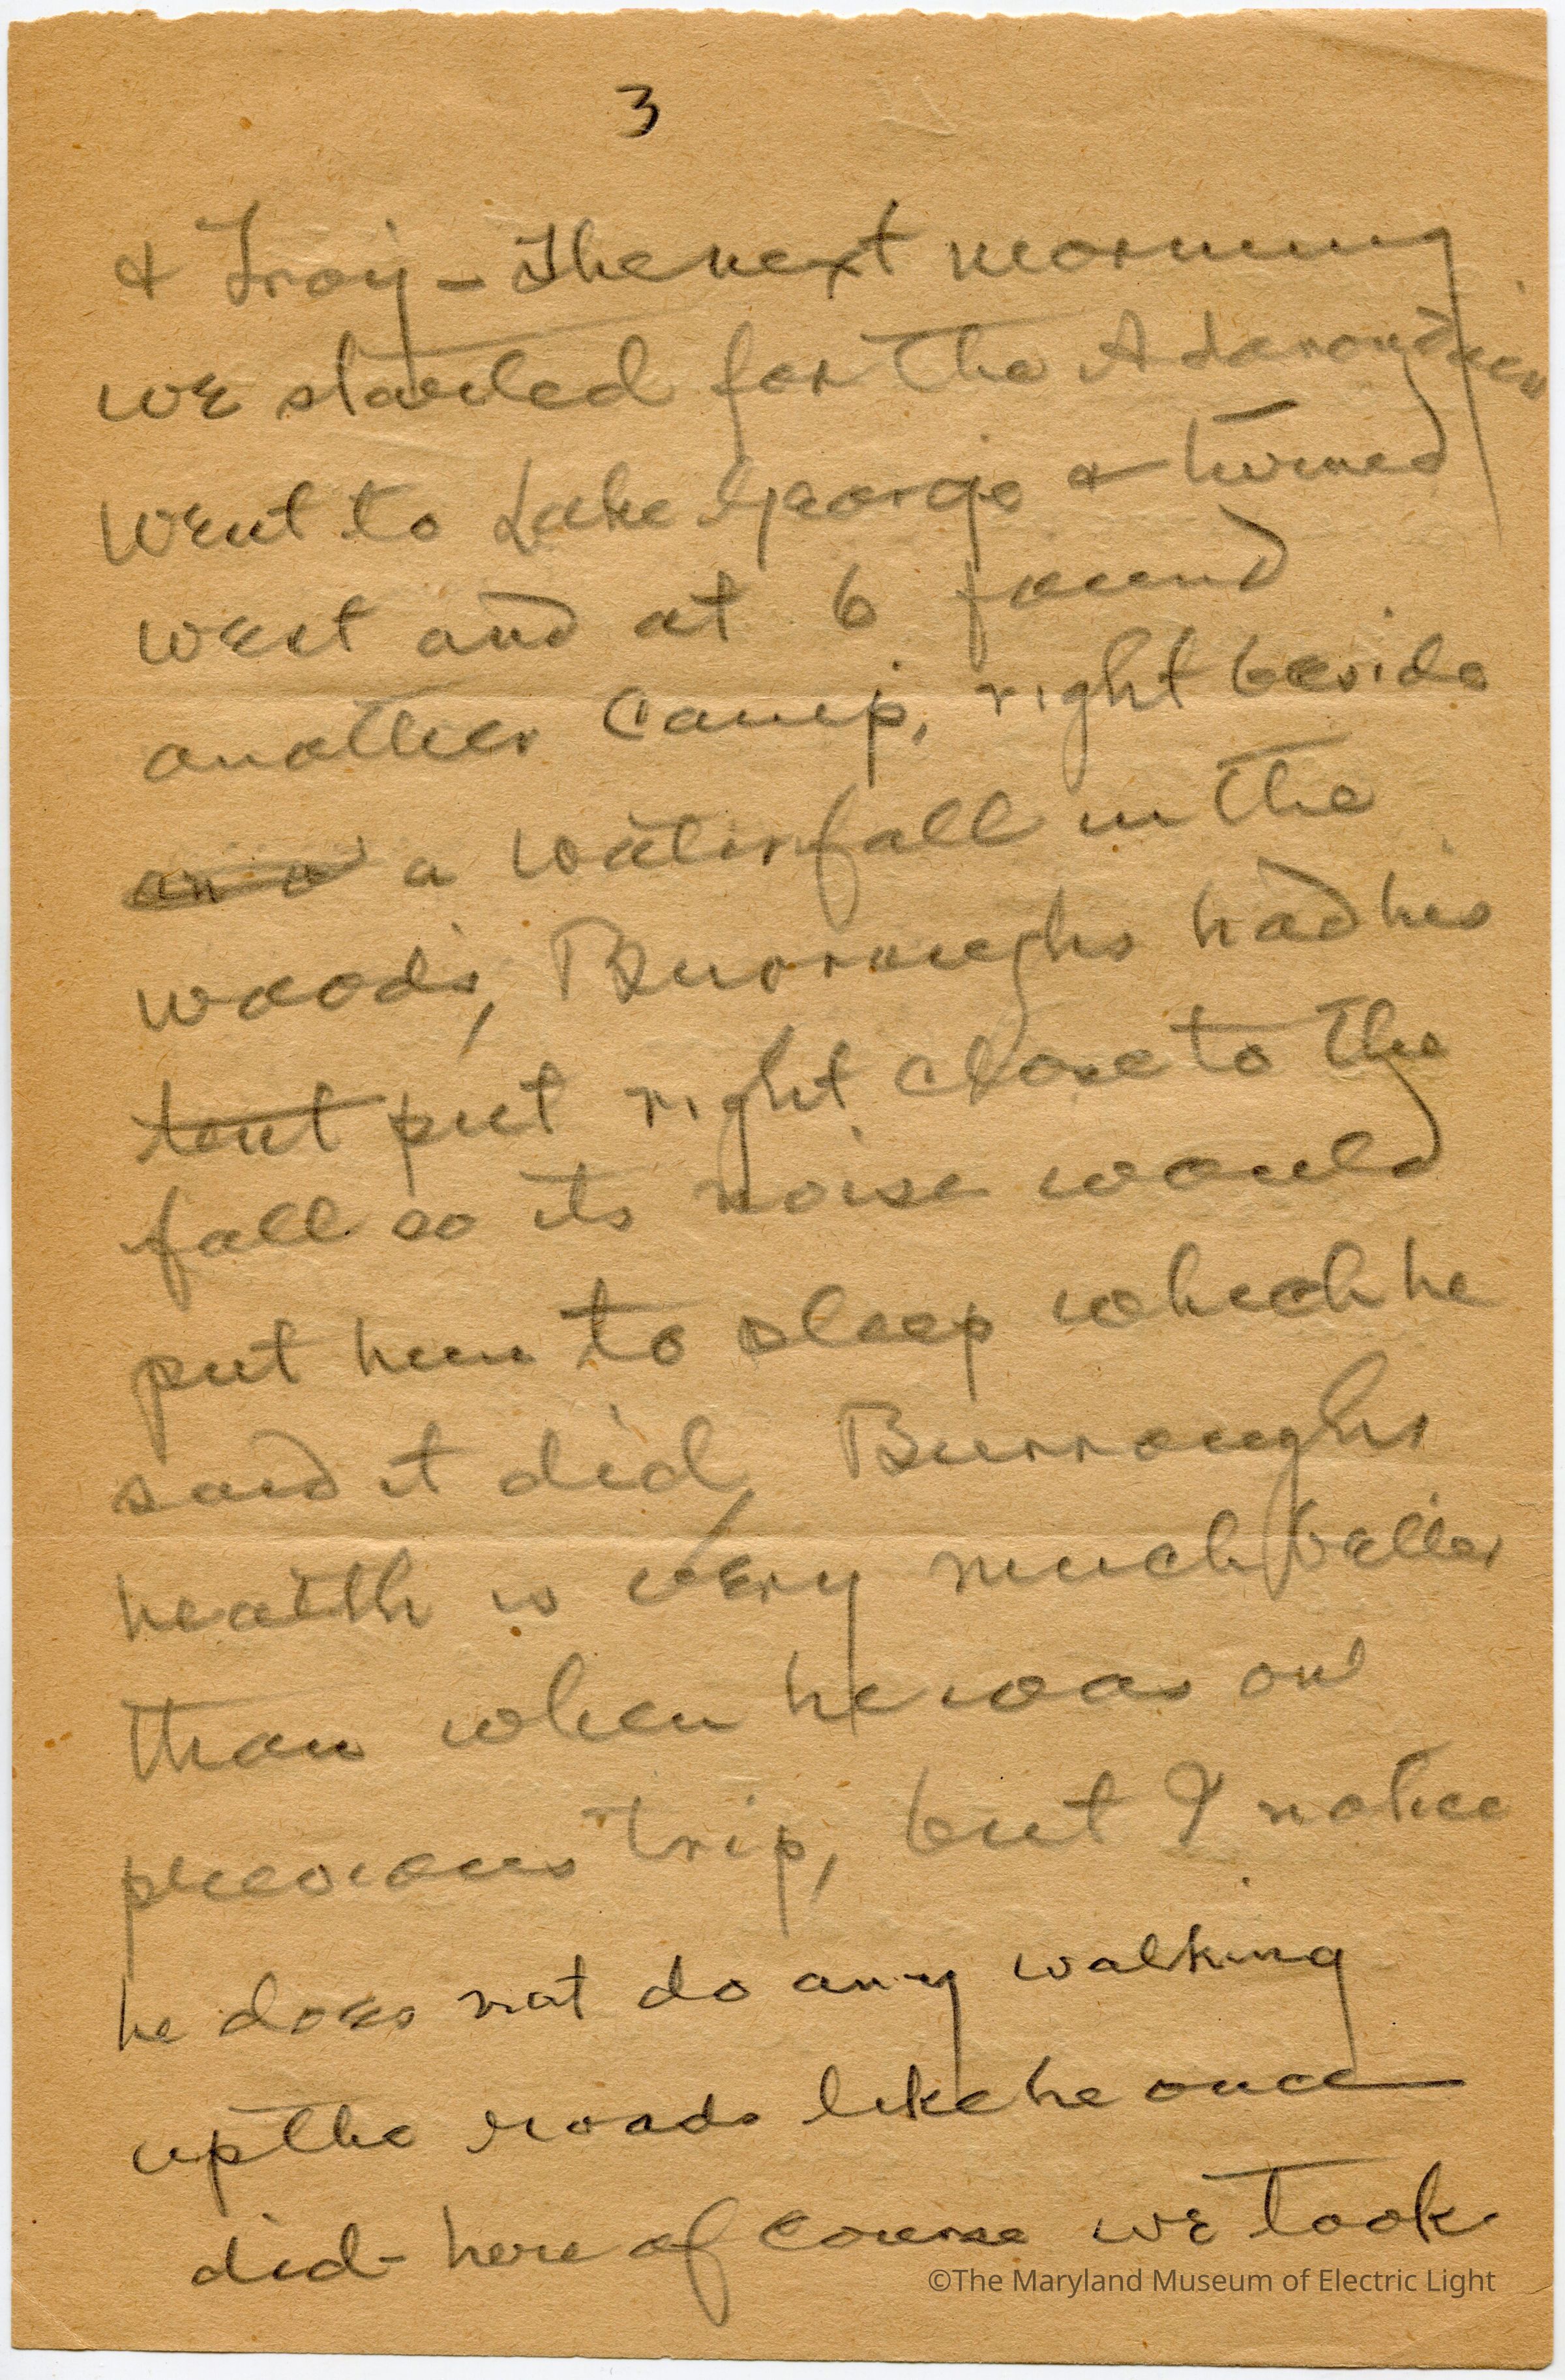 3
& Troy – The next morning
we started for the Adarondacks
went to Lake George & turned
west and at 6 found
another camp, right beside
a waterfall in the
woods, Burroughs had his
tent put right close to the
fall so its noise would
put him to sleep which he
said it did, Burroughs
health is very much better
than when he was on
previous trip, but I notice
he does not do any walking
up the roads like he once
did – here of course we took
©The Maryland Museum of Electric Light